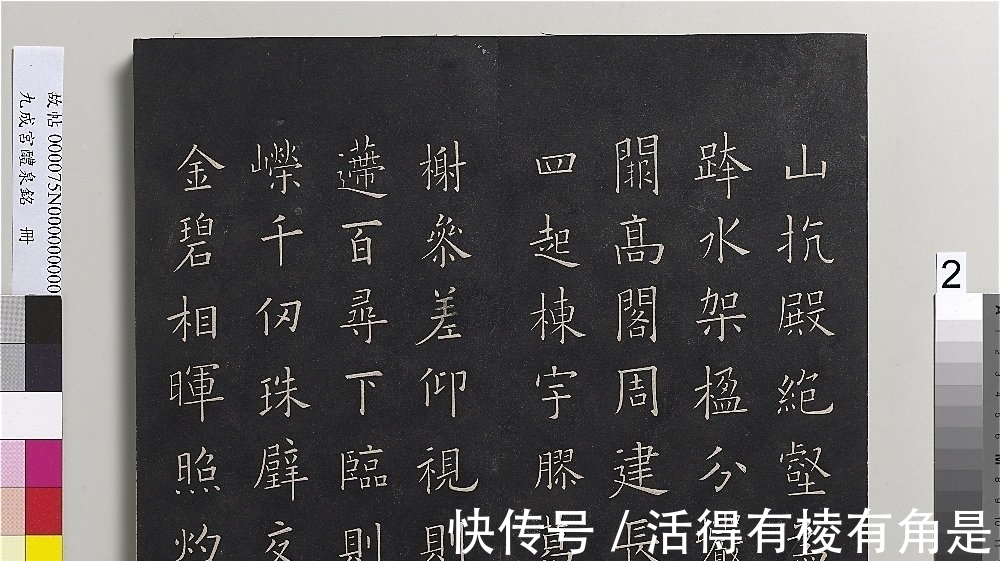 山抗殿絶壑為
跨水架楹分巖
闢高閣周建長
四起棟宇膠葛
榭參差仰視則
遰百尋下臨則
嶸千仞珠璧交
金碧相暉照灼
故帖 000075N000000000
九成宮醴泉銘 冊
2
快传号/活得有棱有角是